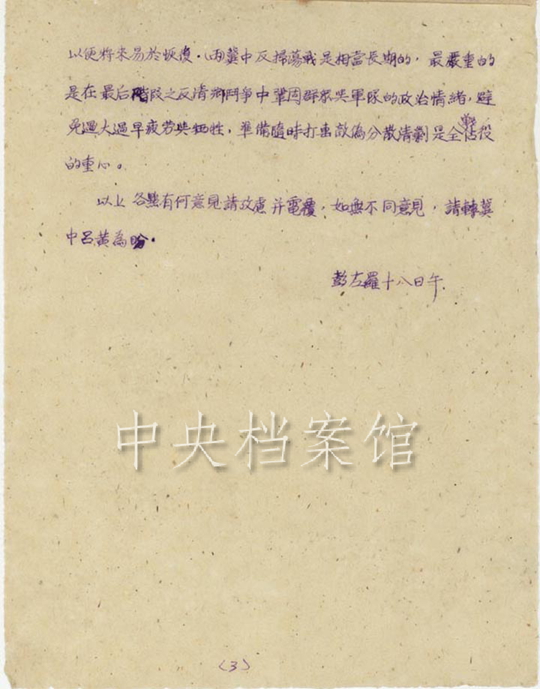 以便将来易於恢復．两冀中反掃蕩战是相當長期的，最嚴重的
是在最后階段之反清鄉鬥争中鞏固群衆與軍隊的政治情緒，避
免過大過早疲劳與牺牲，準備隨時打击敵偽分散清剿是全战役
的重心。
以上各點有何意見請攷慮并電覆，如無不同意見，請轉冀
中吕黄為盼．
彭左羅十八日午．
中央档案馆
(3)